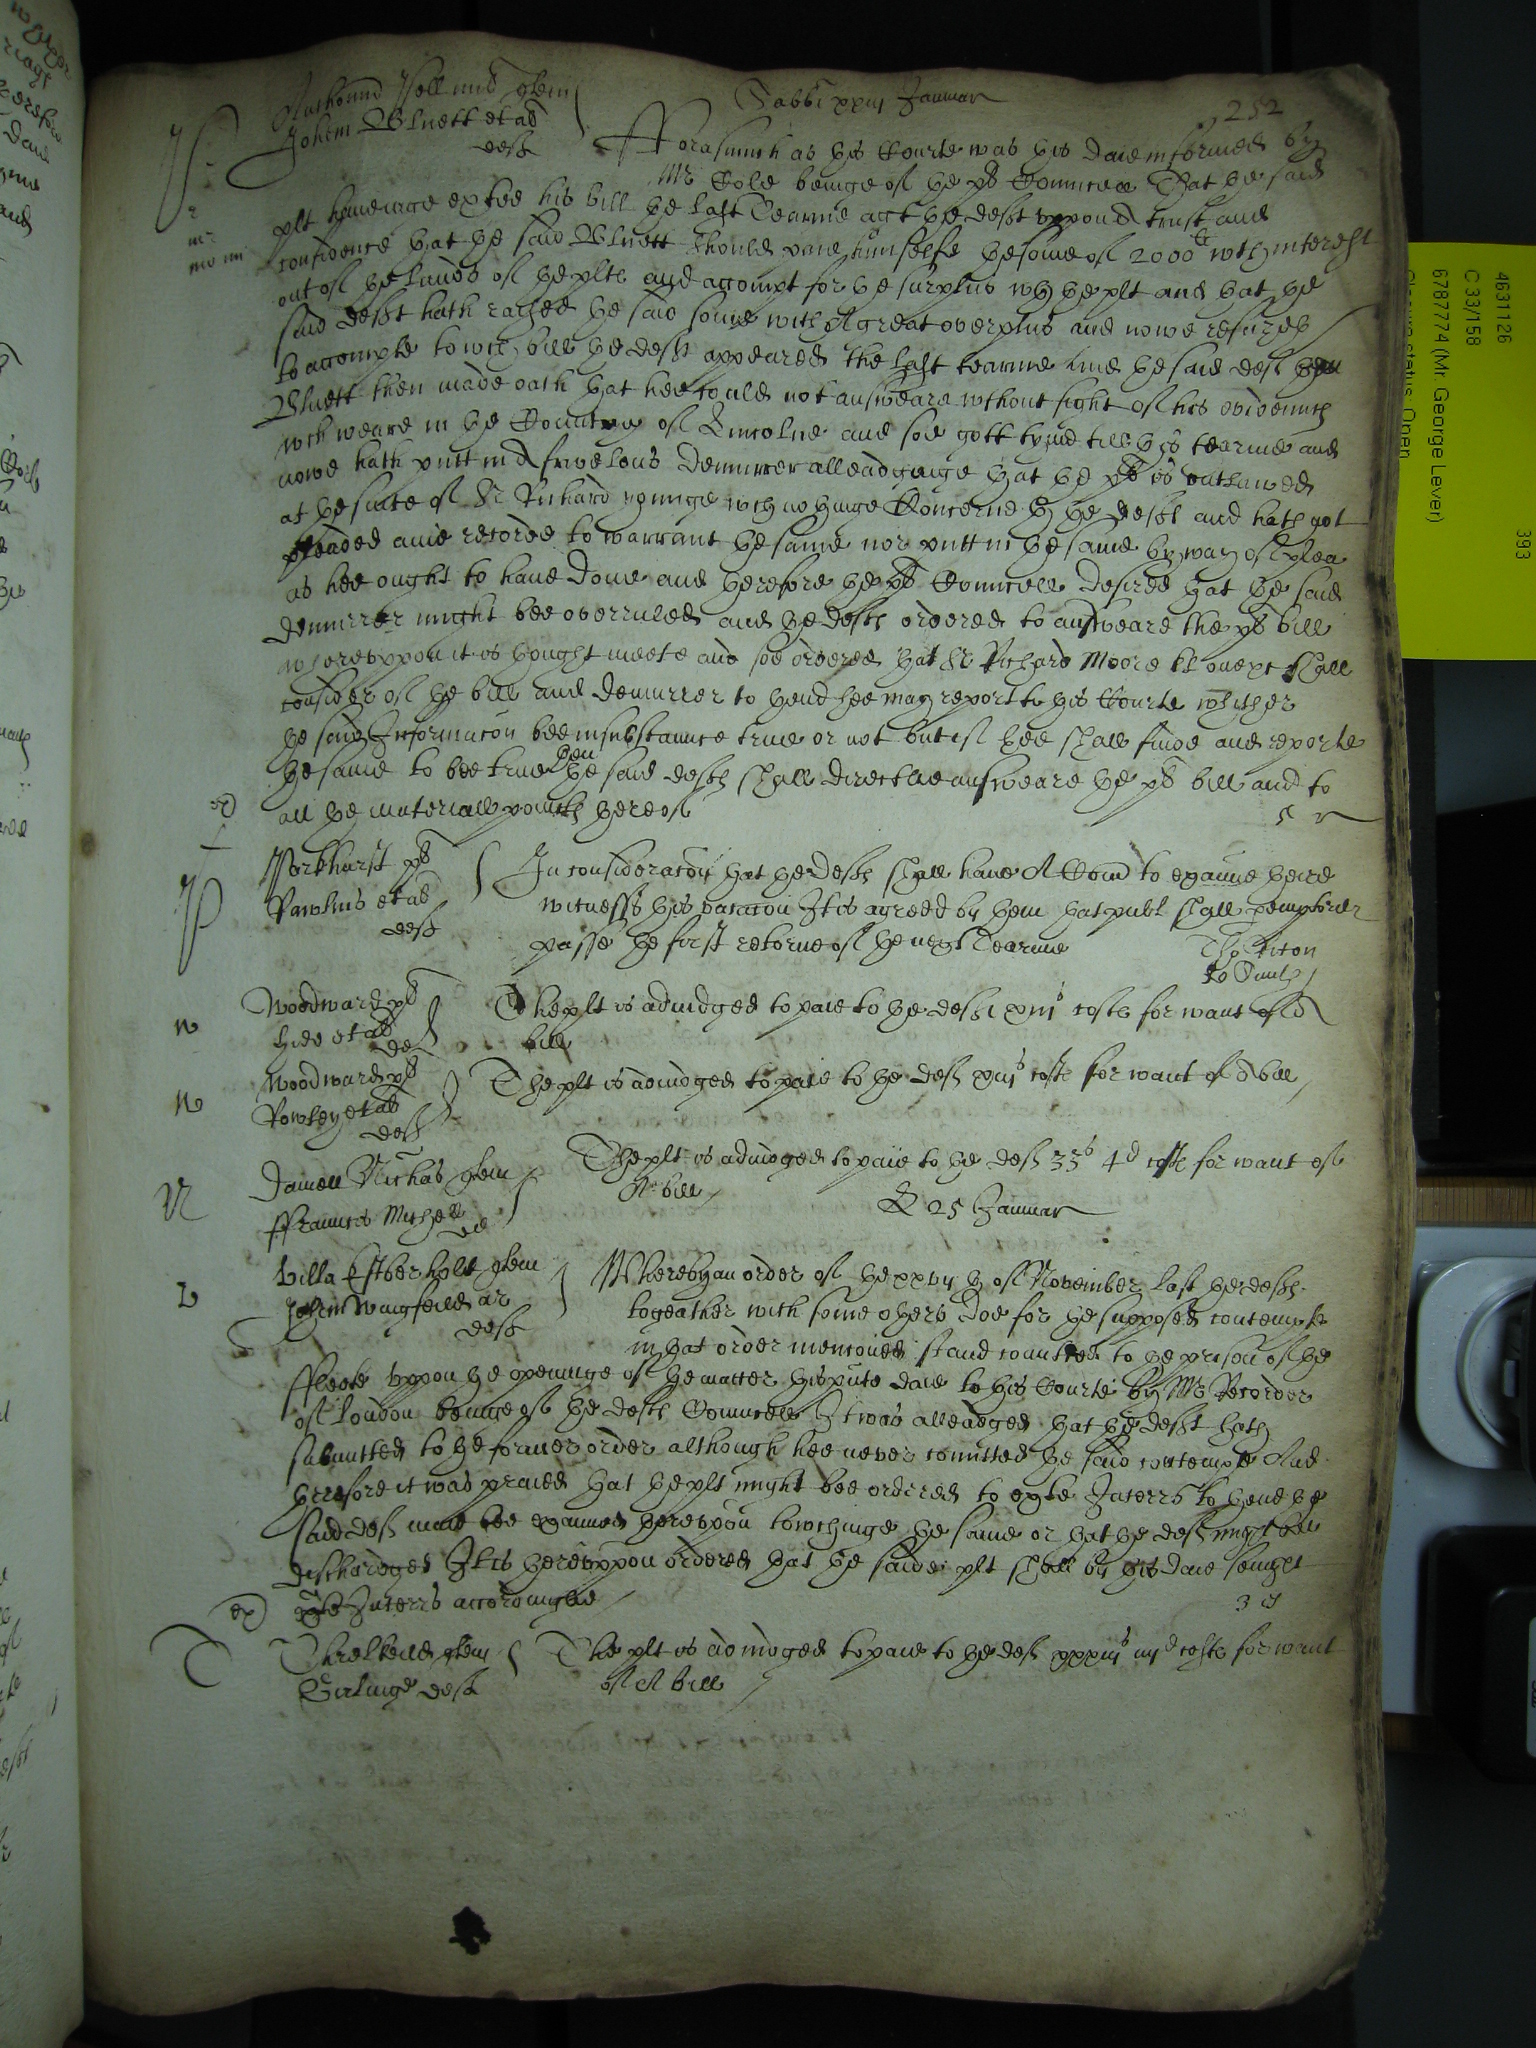 Sabbti xxiij Januar
252
Anthonius quer
Johem Bluett et al
def
Forasmuch as this Courte was this daie informed by
Mr Cole beinge of the pls Councell That the said
plt haveinge exhted his bill the last Tearme agt the deft uppon A trust and
confidence that the said Bluett should paie himselfe the some of 2000li wth interest
out of the lands of the plts and accompt for the surplus wth the plt and that the
said deft hath raysed the said some with A great overplus and nowe refuseth
to accompte to wch bill the deft appeared the last tearme and the said deft
Bluett then made oath that hee could not answeare wthout sight of his evidences
wch weare in the Country of Lincolne and soe gott tyme till this tearme and
nowe hath putt in A frivelous demurrer alleadginge that the pl is outlawed
at the suite of Sr Richard younge wch no thinge Concerneth the deft and hath not
pleaded anie recorde to warrant the same nor putt in the same by way of plea
as hee ought to have done and therefore the pls Councell desired that the said
demurrer might bee overruled and the defts ordered to answeare the pls bill
wherevppon it is thought meete and soe ordered that Sr Richard Moore kt one shall
consider of the bill and demurrer to thend hee may report to this Courte whither
the said Informacon bee in substaunce true or not but if hee shall finde and reporte
the same to bee true then the said defts shall directlie answeare the pls bill and to
all the materiall pointes thereof
Parkhurst pl
Rawlins et al
def
In consideracon that the defts shall have A Comn to examine theire
witness this vacacon It is agreed by them that publ shall peremptorily
passe the first retorne of the next Tearme
Woodward pl
Hide et al
def
The plt is adiudged to paie to the deft xiijs costs for want of A
bill
Woodward pl
Rowley et al
def
The plt is adiudged to paie to the def xiijs costs for want of A bill
Daniell Nichas quer
Frauncis Michell
def
The plt is adiudged to paie to the def 33s 4d costs for want of
A bill
25 Januar
Villa Esther Holt quer
Johem Wingfeild ar
def
Whereby an order of the xxvijth of November last the defts
togeather with some others doe for the supposed contempte
in that order menconed stand comitted to the prison of the
Fleete vppon the openinge of the matter this pnte daie to this Courte by Mr Recorder
of London beinge of the defts Councell It was alleadged that the deft hath
submitted to the former order although hee never comitted the said contempte And
therefore it was praied that the plt might bee ordered to exhte Interrs to thend the
said def maie bee examined therevpon towchinge the same or that the def might bee
dischardged It is therevppon ordered that the said plt shall by this daie senight
exhte Interrs accordinglie
Threlkeld quer
Girlinge def
The plt is adiudged to paie to the def xxxiijs iiijd costs for want
of A bill
4631126
C 33/158
6787774 (Mr. George Lever)
Closure status: Open
393